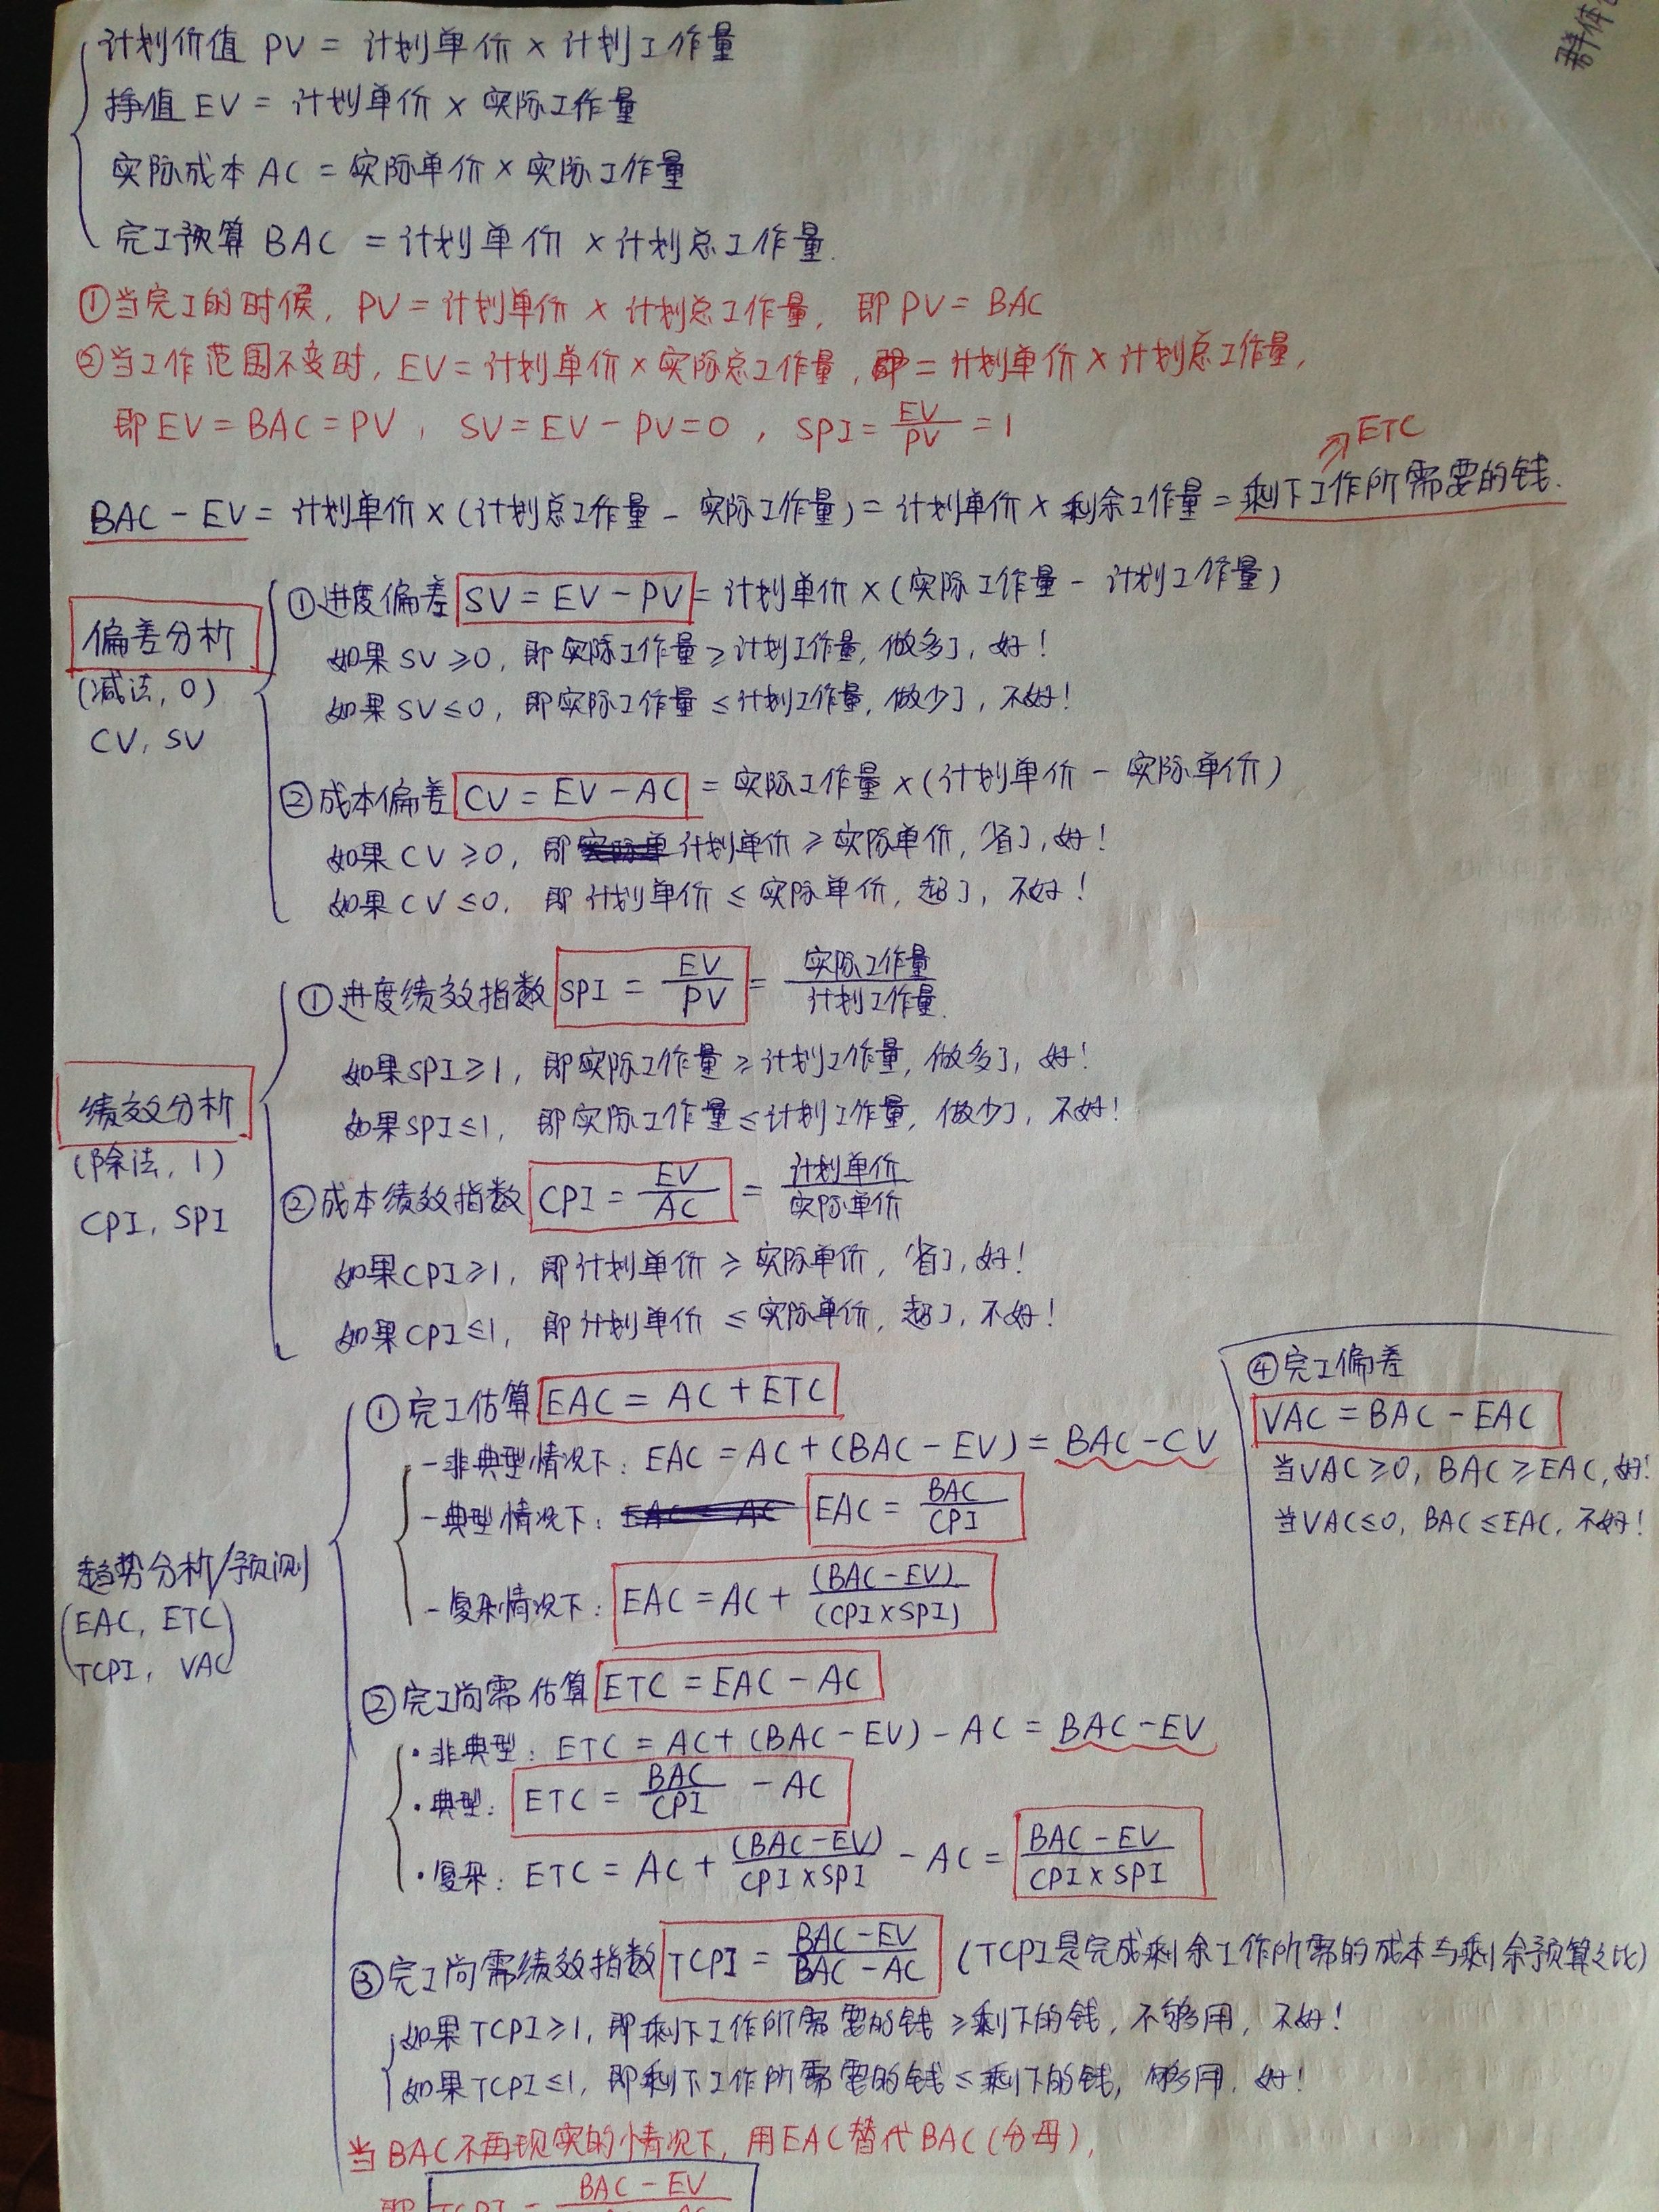 群体
计划价值 PV = 计划单价 × 计划工作量
挣值 EV = 计划单价 × 实际工作量
实际成本 AC = 实际单价 × 实际工作量
完工预算 BAC = 计划单价 × 计划总工作量.
①当完工的时候, PV = 计划单价 × 计划总工作量, 即 PV = BAC
②当工作范围不变时, EV = 计划单价 × 实际总工作量, 即 = 计划单价 × 计划总工作量,
即 EV = BAC = PV, SV = EV - PV = 0, SPI = EV/PV = 1
↗ ETC
BAC - EV = 计划单价 × (计划总工作量 - 实际工作量) = 计划单价 × 剩余工作量 = 剩下工作所需要的钱.
偏差分析
(减法, 0)
CV, SV
①进度偏差 SV = EV - PV = 计划单价 × (实际工作量 - 计划工作量)
如果 SV ≥ 0, 即实际工作量 ≥ 计划工作量, 做多了, 好!
如果 SV ≤ 0, 即实际工作量 ≤ 计划工作量, 做少了, 不好!
②成本偏差 CV = EV - AC = 实际工作量 × (计划单价 - 实际单价)
如果 CV ≥ 0, 即计划单价 ≥ 实际单价, 省了, 好!
如果 CV ≤ 0, 即计划单价 ≤ 实际单价, 超了, 不好!
绩效分析
(除法, 1)
CPI, SPI
①进度绩效指数 SPI = EV/PV = 实际工作量/计划工作量.
如果 SPI ≥ 1, 即实际工作量 ≥ 计划工作量, 做多了, 好!
如果 SPI ≤ 1, 即实际工作量 ≤ 计划工作量, 做少了, 不好!
②成本绩效指数 CPI = EV/AC = 计划单价/实际单价
如果 CPI ≥ 1, 即计划单价 ≥ 实际单价, 省了, 好!
如果 CPI ≤ 1, 即计划单价 ≤ 实际单价, 超了, 不好!
趋势分析/预测
(EAC, ETC
TCPI, VAC)
①完工估算 EAC = AC + ETC
- 非典型情况下: EAC = AC + (BAC - EV) = BAC - CV
- 典型情况下: EAC = BAC/CPI
- 复杂情况下: EAC = AC + (BAC - EV)/(CPI × SPI)
②完工尚需估算 ETC = EAC - AC
· 非典型: ETC = AC + (BAC - EV) - AC = BAC - EV
· 典型: ETC = BAC/CPI - AC
· 复杂: ETC = AC + (BAC - EV)/CPI × SPI - AC = BAC - EV/CPI × SPI
③完工尚需绩效指数 TCPI = BAC - EV/BAC - AC (TCPI是完成剩余工作所需的成本与剩余预算之比)
如果 TCPI ≥ 1, 即剩下工作所需要的钱 ≥ 剩下的钱, 不够用, 不好!
如果 TCPI ≤ 1, 即剩下工作所需要的钱 ≤ 剩下的钱, 够用, 好!
当 BAC 不再现实的情况下, 用 EAC 替代 BAC (分母),
即 TCPI = BAC - EV
④完工偏差
VAC = BAC - EAC
当 VAC ≥ 0, BAC ≥ EAC, 好!
当 VAC ≤ 0, BAC ≤ EAC, 不好!